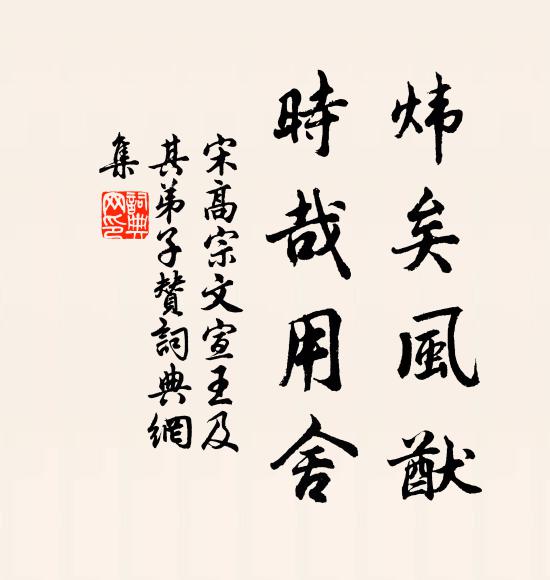 炜矣風猷
時哉用舍
宋高宗文宣王及
其弟子贊詞典網
集
詞典網印